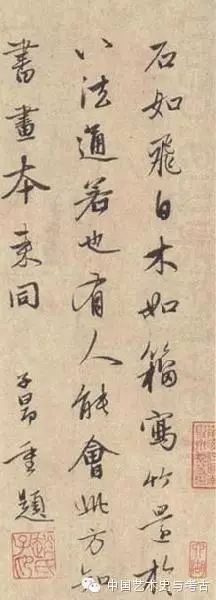 石如飛白木如籀寫竹還於
八法通若也有人能會此方知
書畫本来同
子昂重題
趙氏子昂
中国艺术史与考古